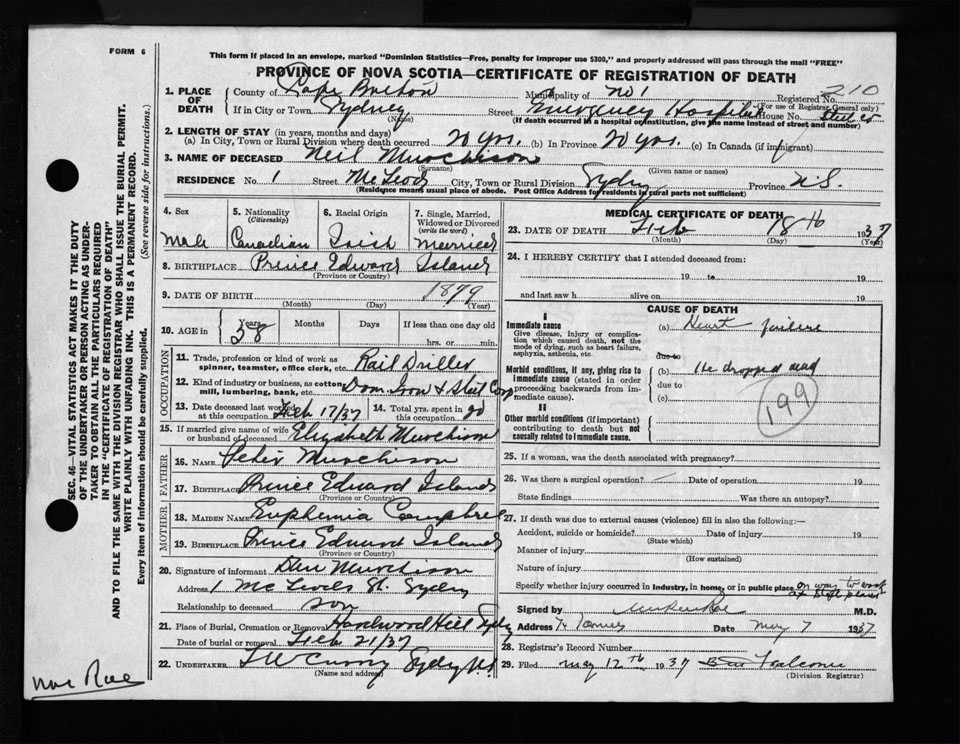 FORM 6
This form if placed in an envelope, marked "Dominion Statistics—Free, penalty for improper use $300," and properly addressed will pass through the mail "FREE"
PROVINCE OF NOVA SCOTIA—CERTIFICATE OF REGISTRATION OF DEATH
1. PLACE OF DEATH
County of Cape Breton Municipality of No 1 Registered No. 210
(For use of Registrar General only)
If in City or Town Sydney Street Emergency Hospital House No. Steel Co
(Name)
(If death occurred in a hospital or institution, give the name instead of street and number)
2. LENGTH OF STAY (in years, months and days)
(a) In City, Town or Rural Division where death occurred 20 yrs. (b) In Province 20 yrs. (c) In Canada (if immigrant)
3. NAME OF DECEASED Neil Murchison
(Surname) (Given name or names)
RESIDENCE No. 1 Street McLeod City, Town or Rural Division Sydney Province N.S.
(Residence means usual place of abode. Post Office Address for residents in rural parts not sufficient)
4. Sex
Male
5. Nationality
(Citizenship)
Canadian
6. Racial Origin
Irish
7. Single, Married, Widowed or Divorced
(write the word)
married
8. BIRTHPLACE Prince Edward Island
(Province or Country)
9. DATE OF BIRTH 1879
(Month) (Day) (Year)
10. AGE in Years Months Days If less than one day old
58 hrs. or min.
OCCUPATION
11. Trade, profession or kind of work as
spinner, teamster, office clerk, etc. Rail Driller
12. Kind of industry or business, as cotton
mill, lumbering, bank, etc. Dom Iron & Steel Corp
13. Date deceased last worked
at this occupation Feb 17/37
14. Total yrs. spent in
this occupation 20
15. If married give name of wife
or husband of deceased Elizabeth Murchison
FATHER
16. NAME Peter Murchison
17. BIRTHPLACE Prince Edward Island
(Province or Country)
MOTHER
18. MAIDEN NAME Euphemia Campbell
19. BIRTHPLACE Prince Edward Island
(Province or Country)
20. Signature of informant Dan Murchison
Address 1 McLeods St. Sydney
Relationship to deceased son
21. Place of Burial, Cremation or Removal Hardwood Hill Sydney
Date of burial or removal Feb 21/37
22. UNDERTAKER T W Curry Sydney N.S.
(Name and address)
MEDICAL CERTIFICATE OF DEATH
23. DATE OF DEATH Feb 18th 1937
(Month) (Day) (Year)
24. I HEREBY CERTIFY that I attended deceased from:
19 to 19
and last saw h alive on 19
CAUSE OF DEATH
I
Immediate cause
Give disease, injury or complication which caused death, not the mode of dying, such as heart failure, asphyxia, asthenia, etc.
(a) Heart failure
due to
Morbid conditions, if any, giving rise to immediate cause (stated in order proceeding backwards from immediate cause).
(b) He dropped dead
due to
(c)
199
II
Other morbid conditions (if important) contributing to death but not causally related to immediate cause.
25. If a woman, was the death associated with pregnancy?
26. Was there a surgical operation? — Date of operation 19
State findings Was there an autopsy?
27. If death was due to external causes (violence) fill in also the following:—
Accident, suicide or homicide? Date of injury 19
(State which)
Manner of injury
(How sustained)
Nature of injury
Specify whether injury occurred in industry, in home, or in public place. on way to work
at Steel plant
Signed by M.D.
Address Date May 7 1937
28. Registrar's Record Number
29. Filed May 12th 1937
(Division Registrar)
SEC. 46—VITAL STATISTICS ACT MAKES IT THE DUTY
OF THE UNDERTAKER OR PERSON ACTING AS UNDER-
TAKER TO OBTAIN ALL THE PARTICULARS REQUIRED
IN THE "CERTIFICATE OF REGISTRATION OF DEATH"
AND TO FILE THE SAME WITH THE DIVISION REGISTRAR WHO SHALL ISSUE THE BURIAL PERMIT.
WRITE PLAINLY WITH UNFADING INK. THIS IS A PERMANENT RECORD.
Every item of information should be carefully supplied. (See reverse side for instructions.)